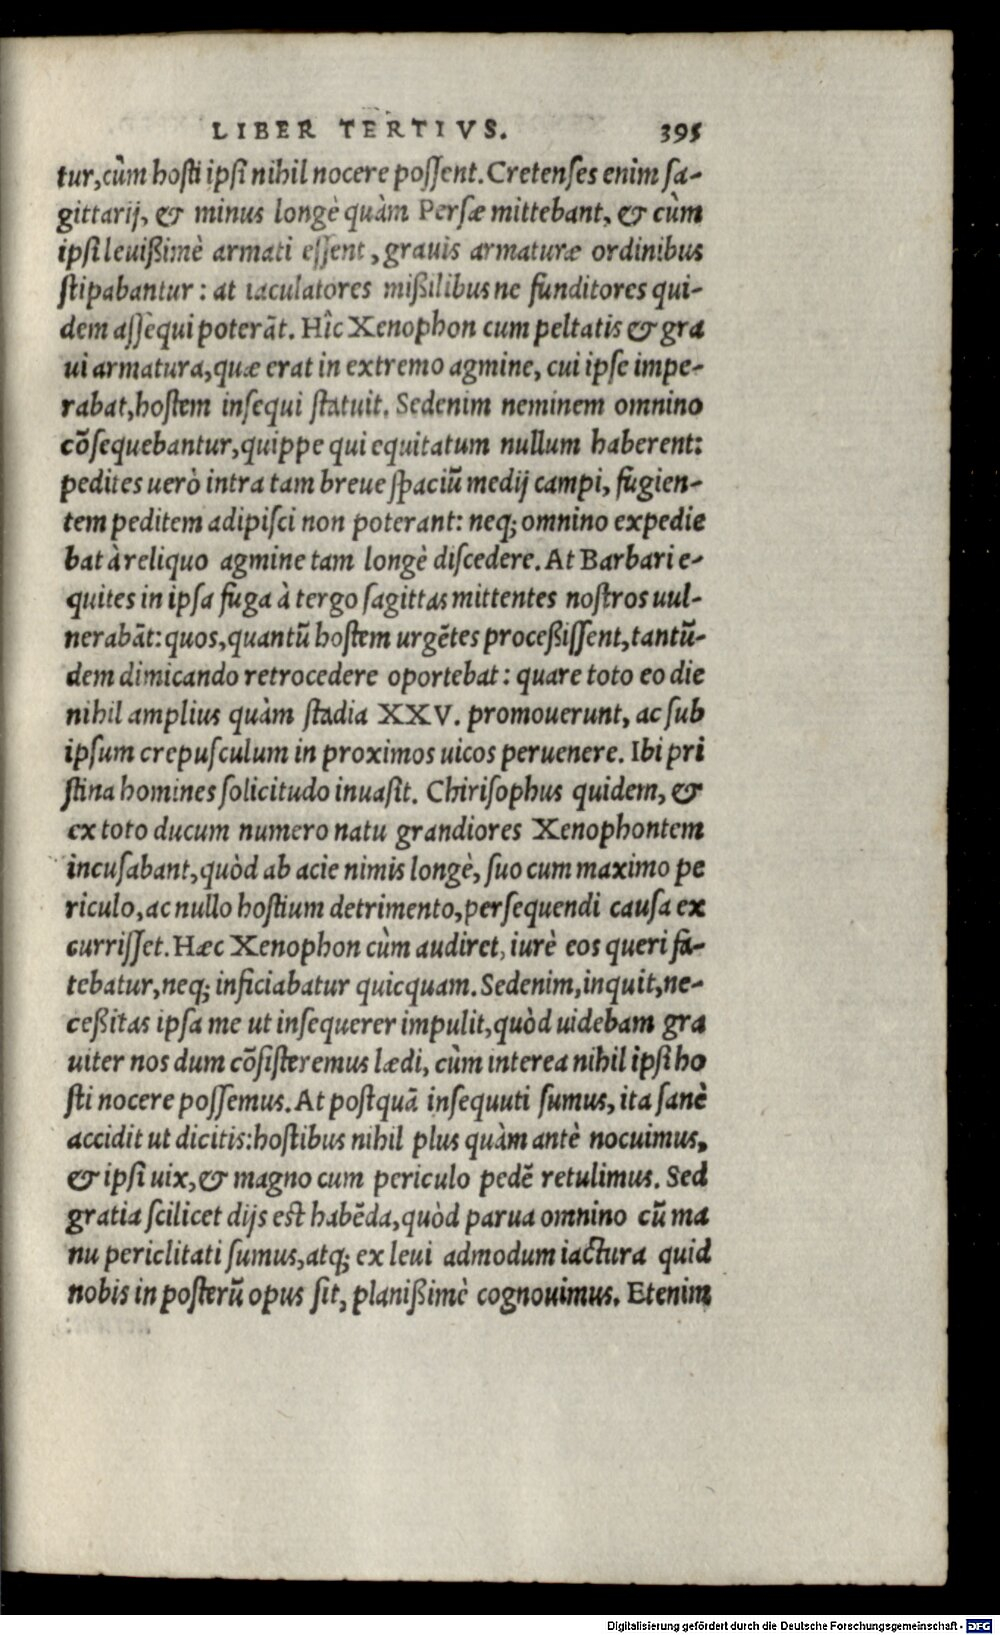 LIBER TERTIVS. 395
tur,cùm hosti ipsi nihil nocere possent. Cretenses enim sa-
gittarij, & minus longè quàm Persæ mittebant, & cùm
ipsi leuißimè armati essent, grauis armaturæ ordinibus
stipabantur: at iaculatores mißilibus ne funditores qui-
dem assequi poterãt. Hîc Xenophon cum peltatis & gra
ui armatura, quæ erat in extremo agmine, cui ipse impe-
rabat, hostem insequi statuit. Sedenim neminem omnino
cõsequebantur, quippe qui equitatum nullum haberent:
pedites uerò intra tam breue spaciũ medij campi, fugien-
tem peditem adipisci non poterant: neq; omnino expedie
bat à reliquo agmine tam longè discedere. At Barbari e-
quites in ipsa fuga à tergo sagittas mittentes nostros uul-
nerabãt: quos, quantũ hostem urgẽtes proceßissent, tantũ-
dem dimicando retrocedere oportebat: quare toto eo die
nihil amplius quàm stadia XXV. promouerunt, ac sub
ipsum crepusculum in proximos uicos peruenere. Ibi pri
stina homines solicitudo inuasit. Chirisophus quidem, &
ex toto ducum numero natu grandiores Xenophontem
incusabant, quòd ab acie nimis longè, suo cum maximo pe
riculo, ac nullo hostium detrimento, persequendi causa ex
currisset. Hæc Xenophon cùm audiret, iurè eos queri fa-
tebatur, neq; inficiabatur quicquam. Sedenim, inquit, ne-
ceßitas ipsa me ut insequerer impulit, quòd uidebam gra
uiter nos dum cõsisteremus lædi, cùm interea nihil ipsi ho
sti nocere possemus. At postquã insequuti sumus, ita sanè
accidit ut dicitis: hostibus nihil plus quàm antè nocuimus,
& ipsi uix, & magno cum periculo pedẽ retulimus. Sed
gratia scilicet dijs est habẽda, quòd parua omnino cũ ma
nu periclitati sumus, atq; ex leui admodum iactura quid
nobis in posterũ opus sit, planißimè cognouimus. Etenim
Digitalisierung gefördert durch die Deutsche Forschungsgemeinschaft - DFG